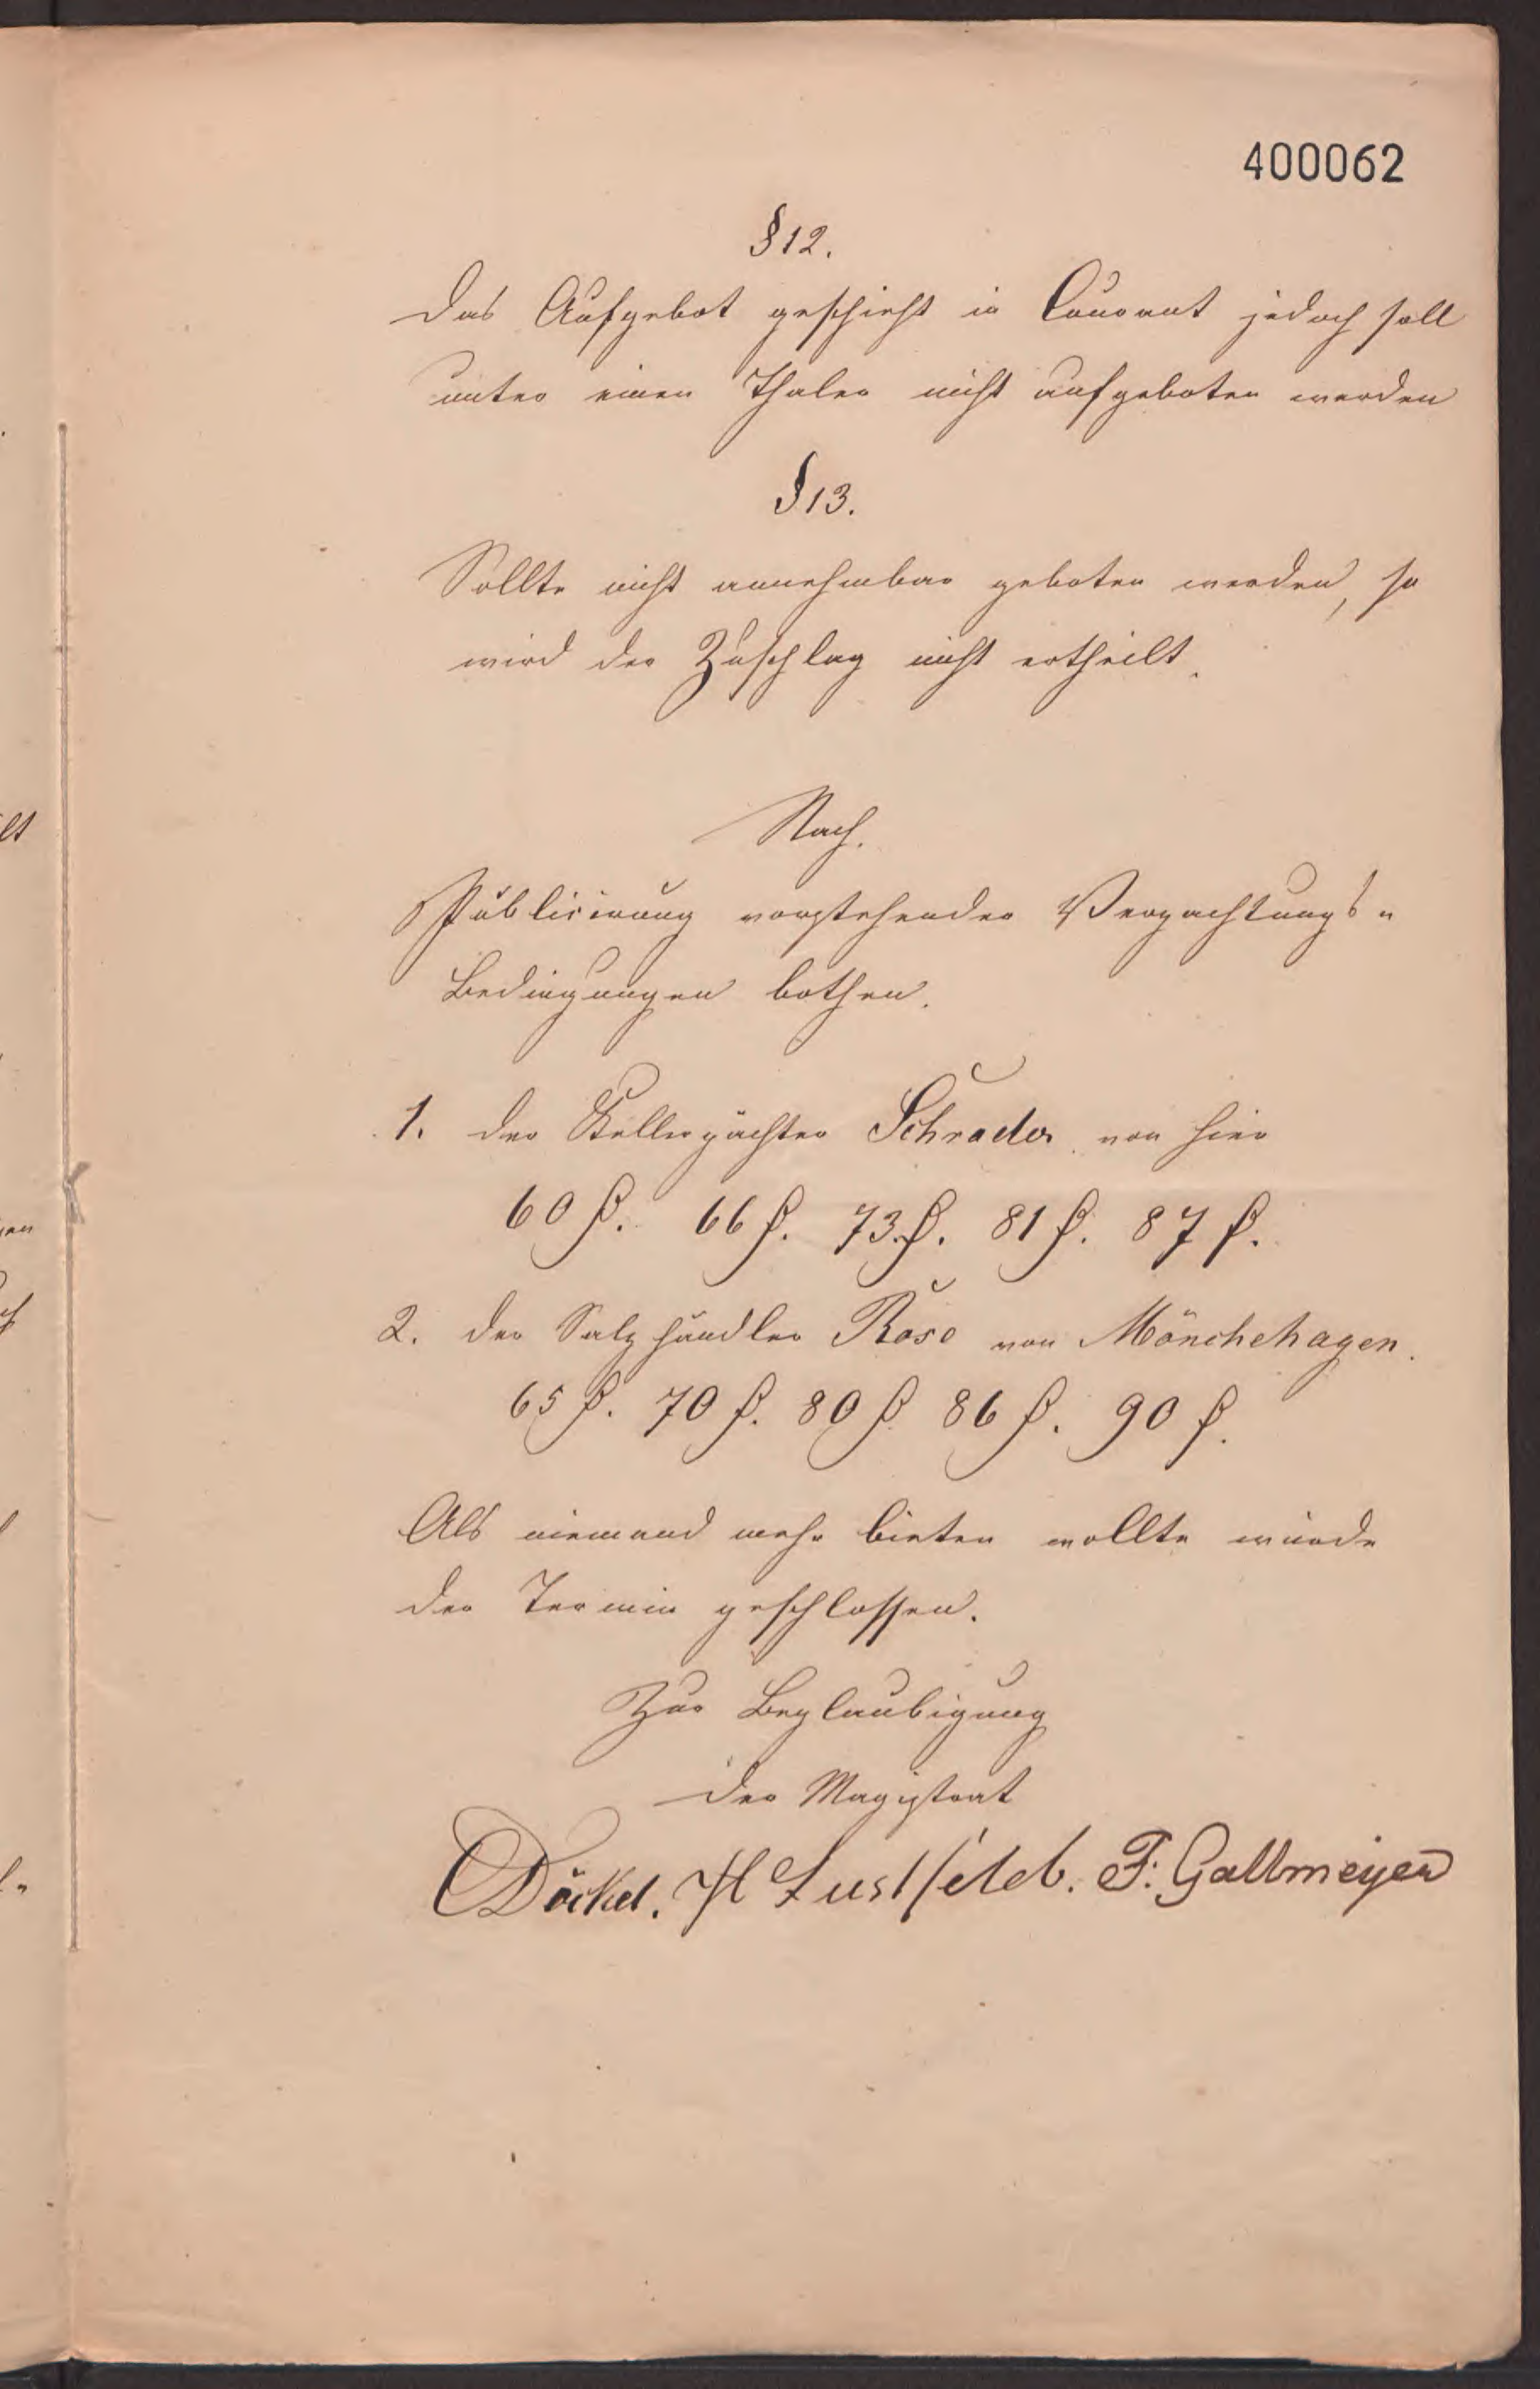 400062
§ 12.
Das Aufgebot geschieht in Courant jedoch soll
unter einen Thaler nicht aufgeboten werden
§ 13.
Sollte nicht annehmbar geboten werden, so
wird der Zuschlag nicht ertheilt.
Nach.
Publicirung vorstehender Verpachtungs-
Bedingungen bothen.
1. der Kellerpächter Schrader von hier
60 ₰. 66 ₰. 73 ₰. 81 ₰. 87 ₰.
2. der Salzhändler Rose von Mönchehagen.
65 ₰. 70 ₰. 80 ₰ 86 ₰. 90 ₰.
Als niemand mehr bieten wollte wurde
der Termin geschlossen.
Zur Beglaubigung
Der Magistrat
Döckel. H Lustfeldt. F. Gallmeyer